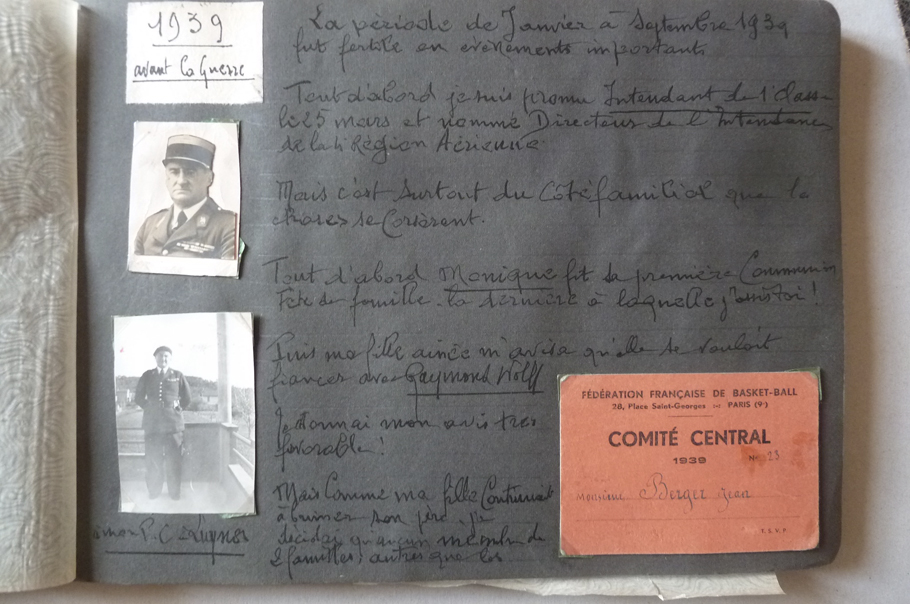 1939
avant la Guerre
La période de Janvier à Septembre 1939
fut fertile en évènements importants
Tout d'abord je suis promu Intendant de 1° Classe
le 25 mars et nommé Directeur de l'Intendance
de la Région Aérienne
Mais c'est surtout du Côté familial que les
choses se Corsèrent.
Tout d'abord Monique fit sa première Communion
Fête de famille - la dernière à laquelle j'assistai !
Puis ma fille ainée m'avisa qu'elle se voulait
fiancer avec Raymond Wolff
Je donnai mon avis très
favorable !
Mais Comme ma fille Continuait
à brimer son père, je
décidai qu'aucun membre de
2 familles, autres que les
mon P.C.
FÉDÉRATION FRANÇAISE DE BASKET-BALL
28, Place Saint-Georges - PARIS (9e)
COMITÉ CENTRAL
1939
N° 23
Monsieur Berger Jean
T.S.V.P.